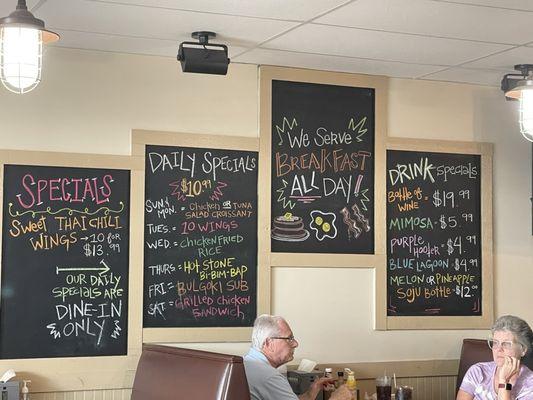 SPECIALS
Sweet THAI CHILI
WINGS → 10 for
$13.99
OUR DAILY
SPECIALS ARE
DINE-IN
ONLY
DAILY SPECIALS
$10.99
SUN. MON. → CHICKEN OR TUNA
SALAD CROISSANT
TUES. → 10 WINGS
WED. → CHICKEN FRIED
RICE
THURS → HOT STONE
BI-BIM-BAP
FRI → BULGOKI SUB
SAT → Grilled Chicken
SANDWICH
We SERVE
BREAKFAST
ALL DAY!
DRINK SPECIALS
BOTTLE OF
WINE → $19.99
MIMOSA → $5.99
PURPLE
HOOTER → $4.99
BLUE LAGOON → $4.99
MELON OR PINEAPPLE
SOJU BOTTLE → $12.00